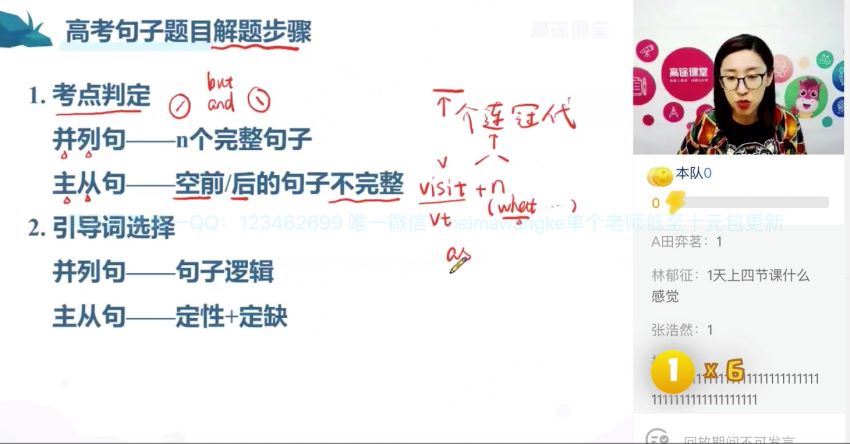 高考句子题目解题步骤
高途课堂
1. 考点判定
but
and
个连冠代
并列句——n个完整句子
主从句——空前/后的句子不完整
visit + n
(what ...)
vt
as
QQ：123462699 唯一微信：heimawangke单个老师低至十元包更新
2. 引导词选择
并列句——句子逻辑
主从句——定性+定缺
高途课堂
本队0
0
A田弈茗：1
林郁征：1天上四节课什么
感觉
张浩然：1
1 x 6
回放期间不可发言